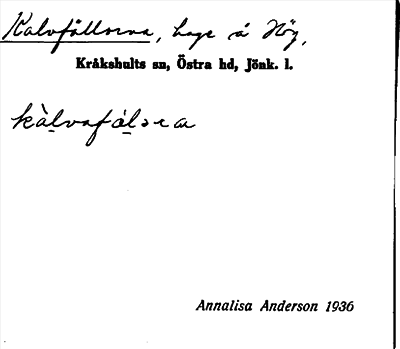 Kalvfållorna, hage å Hög,
Kråkshults sn, Östra hd, Jönk. l.
kàlvafålɔra
Annalisa Anderson 1936